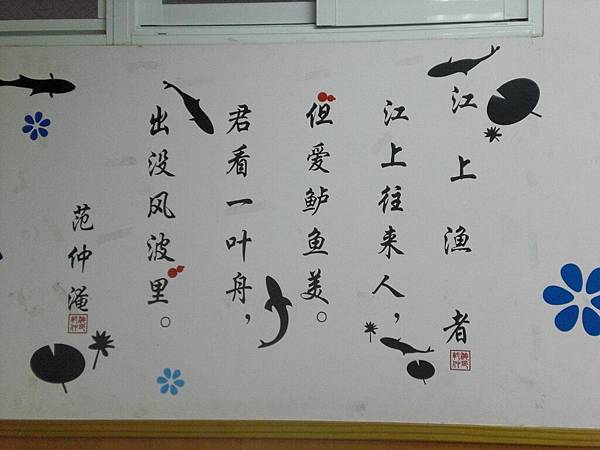 江上漁者
江上往来人，
但爱鲈鱼美。
君看一叶舟，
出没风波里。
范仲淹